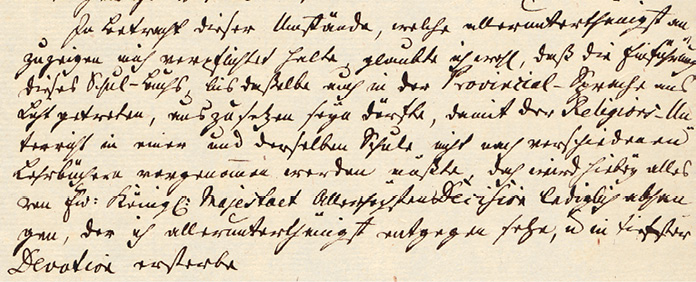 In betracht dieser Umstände, welche allerunterthänigst an
zuzeigen mich verpflichtet halte, glaubte ich wohl, daß die Einführung
dieses Schul-Buchs, bis dasselbe auch in der Provincial-Sprache ans
Licht getreten, auszusetzen seyn dörfte, damit der Religions-Un
terricht in einer und derselben Schule nicht nach verschiedenen
Lehrbüchern vorgenommen werden müßte, doch wird hiebey alles
von Ew: Königl: Majestaet Allerhöchsten Decision lediglich abhan
gen, der ich allerunterthänigst entgegen sehe, u in tiefster
Devotion ersterbe